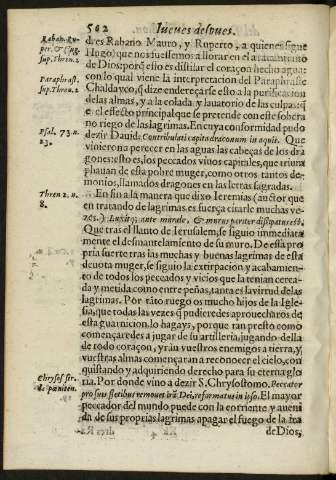 502 Iueues despues.
Raban. Ru-
per. & Hug.
sup. Thren. 2
dres Rabano Mauro, y Ruperto, a quienes sigue
Hugo) que nos fuessemos a llorar en el acatamiento
de Dios: porq̃ esto es distilar el coraçon hecho agua:
Paraphrast.
sup. Thren. 2.
con lo qual viene la interpretacion del Paraphraste
Chaldayco, q̃ dize endereçarse esto a la purificacion
de las almas, y a la colada y lauatorio de las culpas: q̃
es el effecto principal que se pretende con este sobera
no riego de las lagrimas. En cuya conformidad pudo
Psal. 73. n.
23.
dezir Dauid: Contribulasti capita draconum in aquis. Que
vinieron a perecer en las aguas las cabeças de los dra
gones: esto es, los peccados y vicios capitales, que triun
phauan de esta pobre muger, como otros tantos de-
monios, llamados dragones en las letras sagradas.
Thren 2. n.
8.
En fin a la manera que dixo Ieremias (auctor que
en tratando de lagrimas es fuerça citarle muchas ve-
zes.) Luxitq; ante murale, & murus pariter dissipatus est.
Que tras el llanto de Ierusalem, se siguio immediata
mente el desmantelamiento de su muro. De esta pro
pria suerte tras las muchas y buenas lagrimas de esta
deuota muger, se siguio la extirpacion y acabamien-
to de todos los peccados y vicios que la tenian cerca-
da y metida como entre peñas, tanta es la virtud de las
lagrimas. Por tãto ruego os mucho hijos de la Igle-
sia, que todas las vezes q̃ pudieredes aprouecharos de
esta guarnicion lo hagays, porque tan presto como
començaredes a jugar de su artilleria, jugando della
de todo coraçon, yràn vuestros enemigos a tierra, y
vuestras almas començaran a reconocer el cielo, con
quistando y adquiriendo derecho para su eterna glo
Chrysos. ser.
de pœniten.
ria. Por donde vino a dezir S. Chrysostomo. Peccator
pro suis fletibus remouet irã Dei, reformatus in ipso. El mayor
peccador del mundo puede con la corriente y aueni
da de sus proprias lagrimas apagar el fuego de la ira
de Dios,